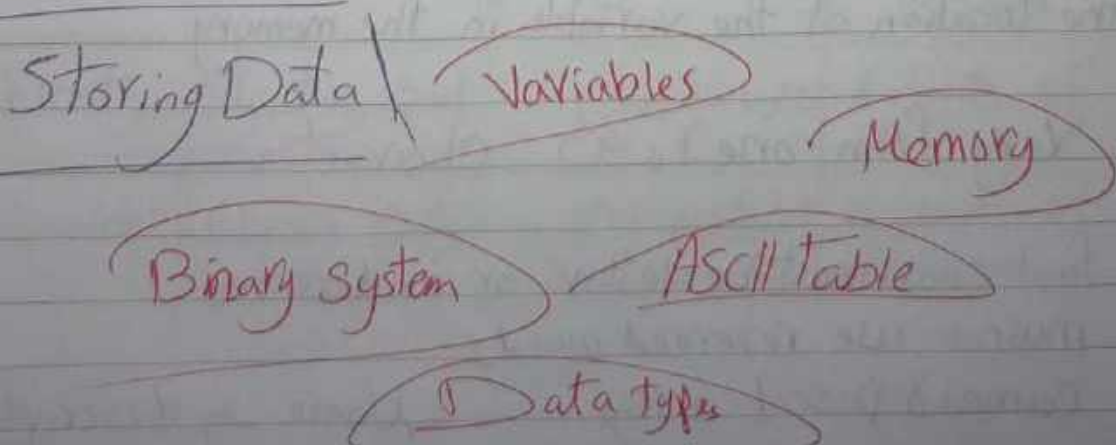 Storing Data
Variables
Memory
Binary system
ASCII Table
Data types